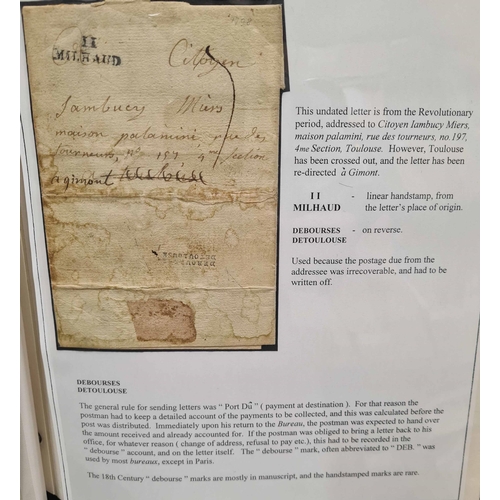 1798
II
MILHAUD
Citoyen
Jambucy Miers
maison palamini rue des
tourneurs, No 197 4me Section
a gimont
DEBOURSES
DETOULOUSE
This undated letter is from the Revolutionary
period, addressed to Citoyen Iambucy Miers,
maison palamini, rue des tourneurs, no.197,
4me Section, Toulouse. However, Toulouse
has been crossed out, and the letter has been
re-directed à Gimont.
I I - linear handstamp, from
MILHAUD the letter's place of origin.
DEBOURSES - on reverse.
DETOULOUSE
Used because the postage due from the
addressee was irrecoverable, and had to be
written off.
DEBOURSES
DETOULOUSE
The general rule for sending letters was " Port Dû " ( payment at destination ). For that reason the
postman had to keep a detailed account of the payments to be collected, and this was calculated before the
post was distributed. Immediately upon his return to the Bureau, the postman was expected to hand over
the amount received and already accounted for. If the postman was obliged to bring a letter back to his
office, for whatever reason ( change of address, refusal to pay etc.), this had to be recorded in the
" debourse " account, and on the letter itself. The " debourse " mark, often abbreviated to " DEB. " was
used by most bureaux, except in Paris.
The 18th Century " debourse " marks are mostly in manuscript, and the handstamped marks are rare.